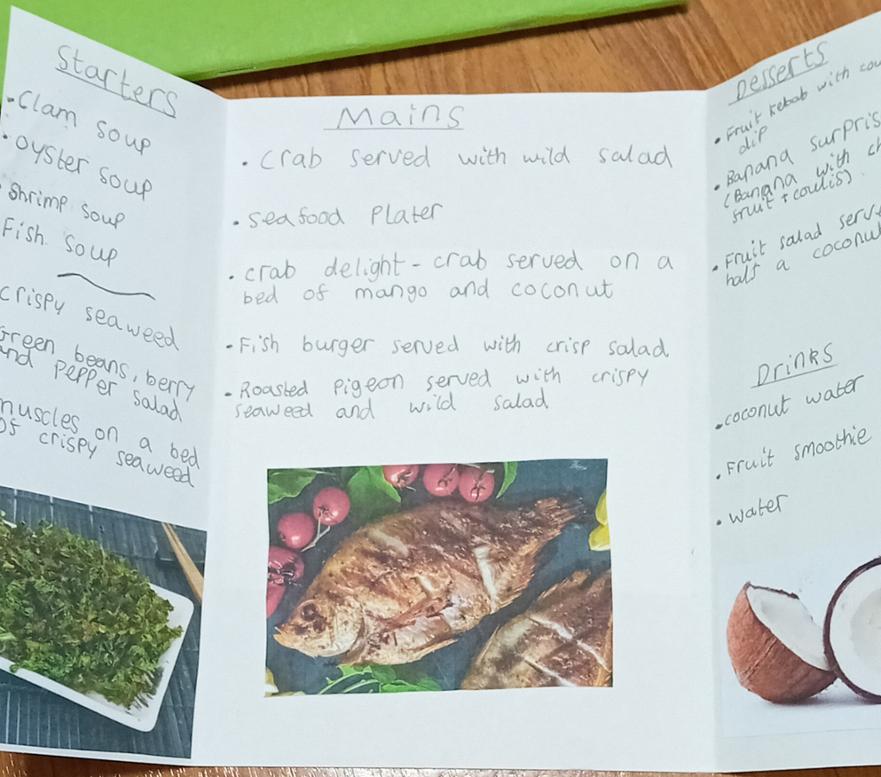 Starters
• Clam soup
• oyster soup
• Shrimp soup
Fish soup
crispy seaweed
Green beans, berry
and pepper salad
muscles on a bed
of crispy seaweed
Mains
• crab served with wild salad
• seafood Plater
• crab delight - crab served on a
bed of mango and coconut
• Fish burger served with crisp salad
• Roasted Pigeon served with crispy
seaweed and wild salad
Desserts
• Fruit kebab with
dip
• Banana
(Banana with
fruit + coulis)
• Fruit salad
half a
Drinks
• coconut water
• Fruit smoothie
• water